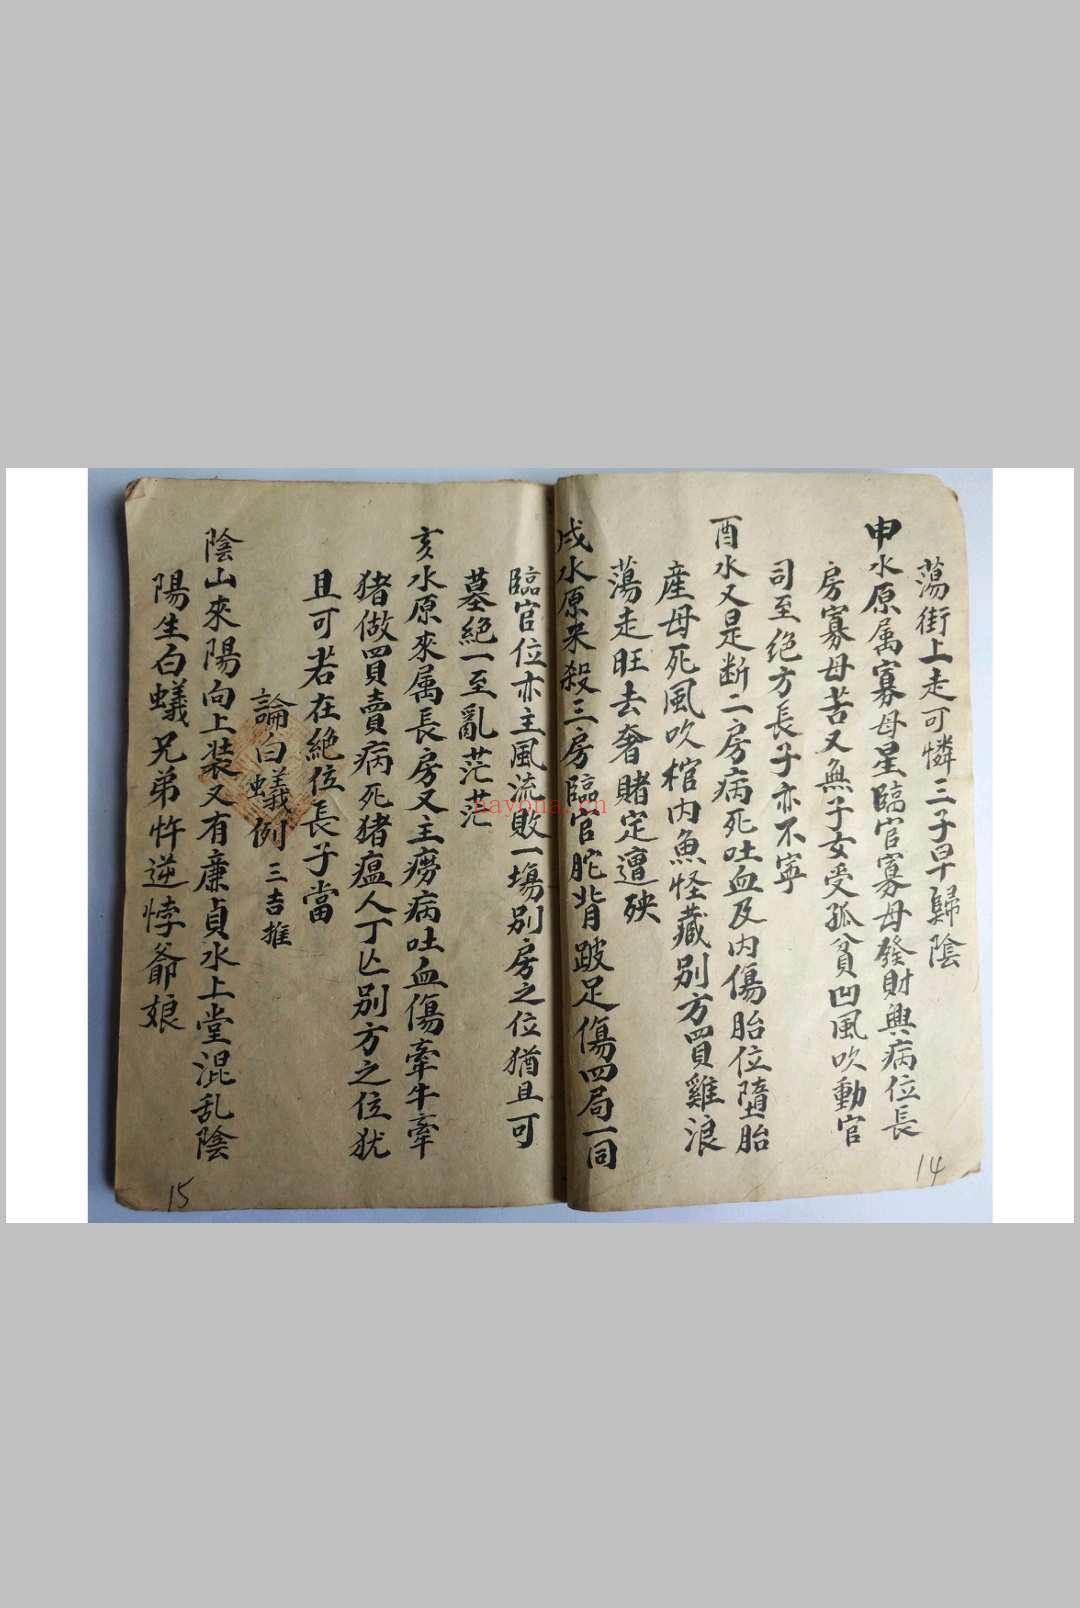 蕩街上走可憐三子早歸陰
申水原属寡母星臨官寡母發財興病位長
房寡母苦又無子女受孤貧凹風吹動官
司至绝方長子亦不寧
酉水又是断二房病死吐血及内傷胎位墮胎
産母死風吹棺内魚怪藏别方買雞浪
蕩走旺去奢賭定遭殃
戌水原来殺三房臨官駝背跛足傷四局一同
臨官位亦主風流敗一塲别房之位猶且可
墓絶一至亂茫茫
亥水原來属長房又主癆病吐血傷牽牛牽
猪做買賣病死猪瘟人丁亡别方之位犹
且可若在絶位長子當
論白蟻例 三吉推
陰山來陽向上裝又有廉貞水上堂混乱陰
陽生白蟻兄弟忤逆悖爺娘
14
15
nayona.cn